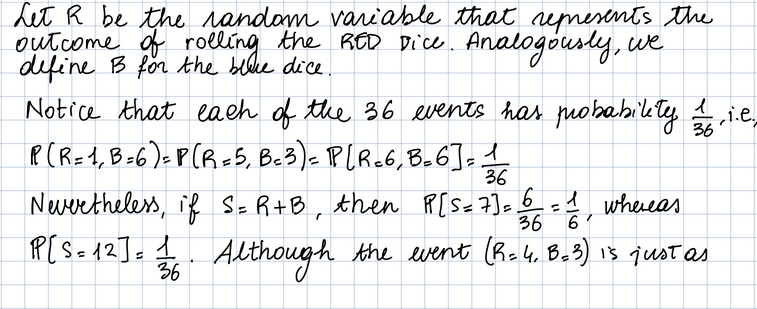 Let R be the random variable that represents the
outcome of rolling the RED Dice. Analogously, we
define B for the blue dice.
Notice that each of the 36 events has probability 1/36, i.e,
ℙ(R=1, B=6)=ℙ(R=5, B=3)=ℙ[R=6, B=6]=1/36
Nevertheless, if S=R+B, then ℙ[S=7]=6/36=1/6, whereas
ℙ[S=12]=1/36. Although the event (R=4, B=3) is just as